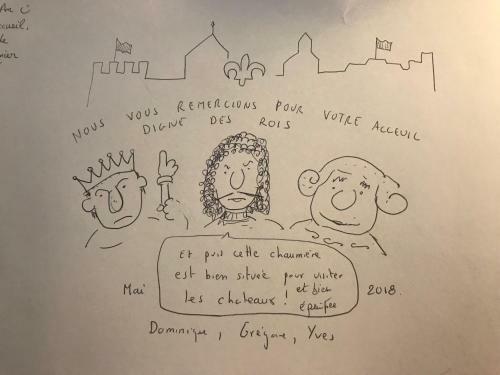 NOUS VOUS REMERCIONS POUR VOTRE ACCEUIL
DIGNE DES ROIS
Et puis cette chaumière
est bien située pour visiter
les chateaux ! et bien
équipée
Mai 2018.
Dominique, Grégoire, Yves